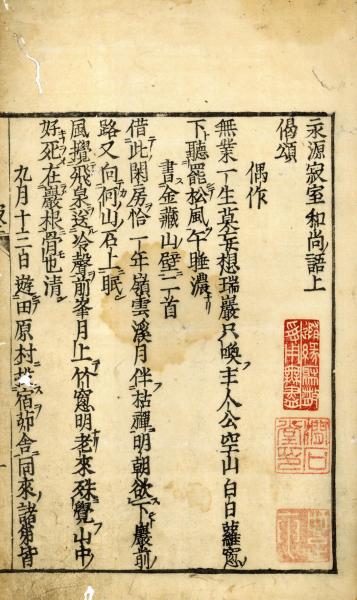 永源寂室和尚語上
偈頌
偶作
無業一生莫妄想瑞巖只喚主人公空山白日蘿窓
下聽罷松風午睡濃
書金藏山壁二首
借此閑房恰一年嶺雲溪月伴枯禪明朝欲下巖前
路又向何山石上眠
風攪飛泉送冷聲前峯月上竹窓明老來殊覺山中
好死在巖根骨也清
九月十三日遊田原村宿舎同來諸弟皆